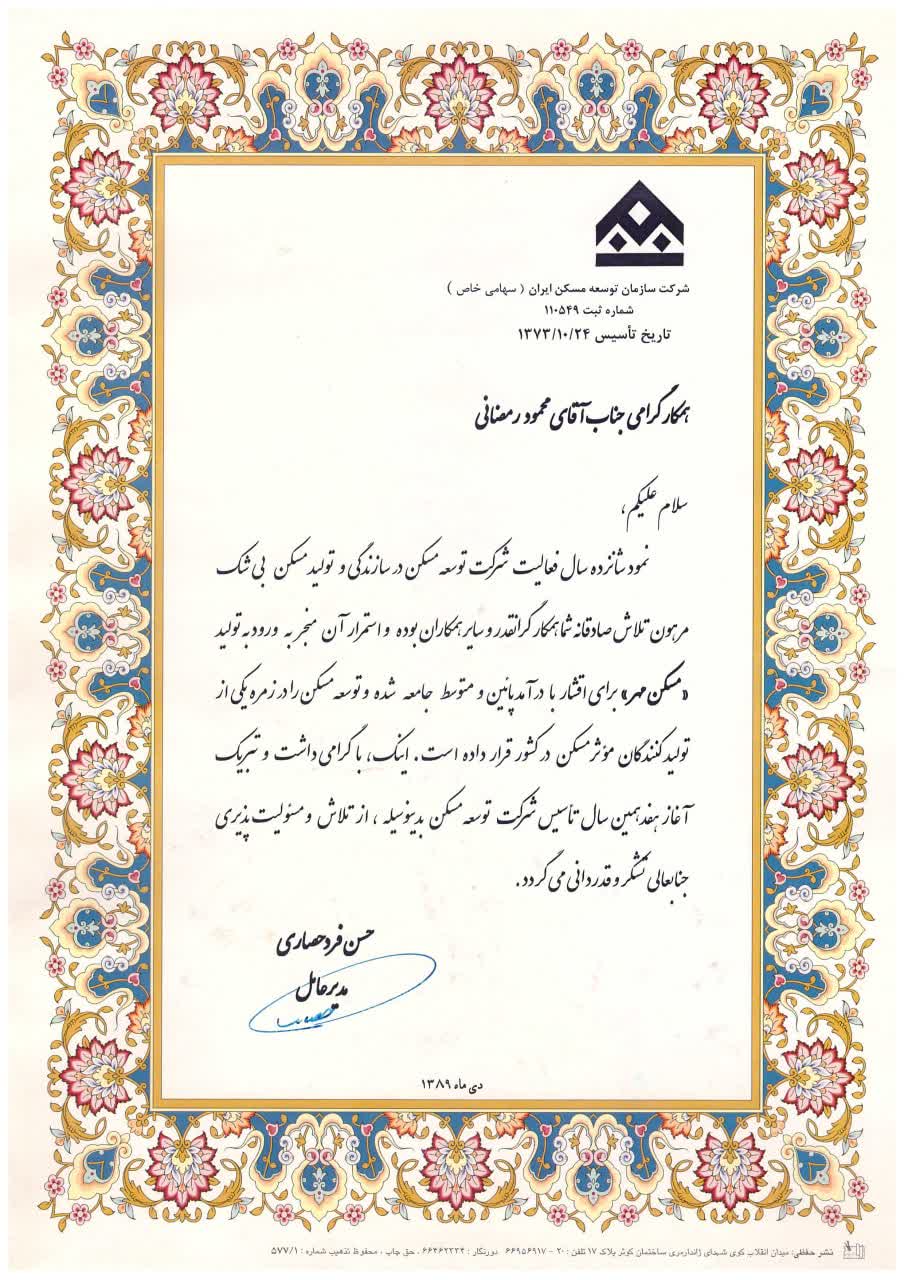 شرکت سازمان توسعه مسکن ایران ( سهامی خاص )
شماره ثبت ۱۱۰۵۴۹
تاریخ تأسیس ۱۳۷۳/۱۰/۲۴
همکار گرامی جناب آقای محمود رمضانی
سلام علیکم،
نمود شانزده سال فعالیت شرکت توسعه مسکن در سازندگی و تولید مسکن بی شک
مرهون تلاش صادقانه شما همکار گرانقدر و سایر همکاران بوده و استمرار آن منجر به ورود به تولید
«مسکن مهر» برای اقشار با درآمد پائین و متوسط جامعه شده و توسعه مسکن را در زمره یکی از
تولید کنندگان مؤثر مسکن در کشور قرار داده است. اینک، با گرامی داشت و تبریک
آغاز هفدهمین سال تأسیس شرکت توسعه مسکن بدینوسیله ، از تلاش و مسئولیت پذیری
جنابعالی تشکر و قدردانی می گردد.
حسن فرد حصاری
مدیرعامل
دی ماه ۱۳۸۹
نشر حفظی: میدان انقلاب کوی شهدای ژاندارمری ساختمان کوثر پلاک ۱۷ تلفن : ۲۰ - ۶۶۹۵۶۹۱۷ دورنگار : ۶۶۴۶۲۲۳۴ ، حق چاپ ، محفوظ تذهیب شماره : ۵۷۷/۱